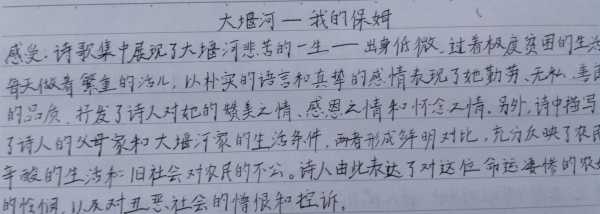 大堰河—我的保姆
感受:诗歌集中展现了大堰河悲苦的一生——出身低微、过着极度贫困的生活
每天做着繁重的活儿,以朴实的语言和真挚的感情表现了她勤劳、无私、善良
的品质,抒发了诗人对她的赞美之情、感恩之情和怀念之情。另外,诗中描写
了诗人的父母家和大堰河家的生活条件,两者形成鲜明对比,充分反映了农民
辛酸的生活和旧社会对农民的不公。诗人由此表达了对这位命运凄惨的农妇
的怜悯,以及对丑恶社会的憎恨和控诉。